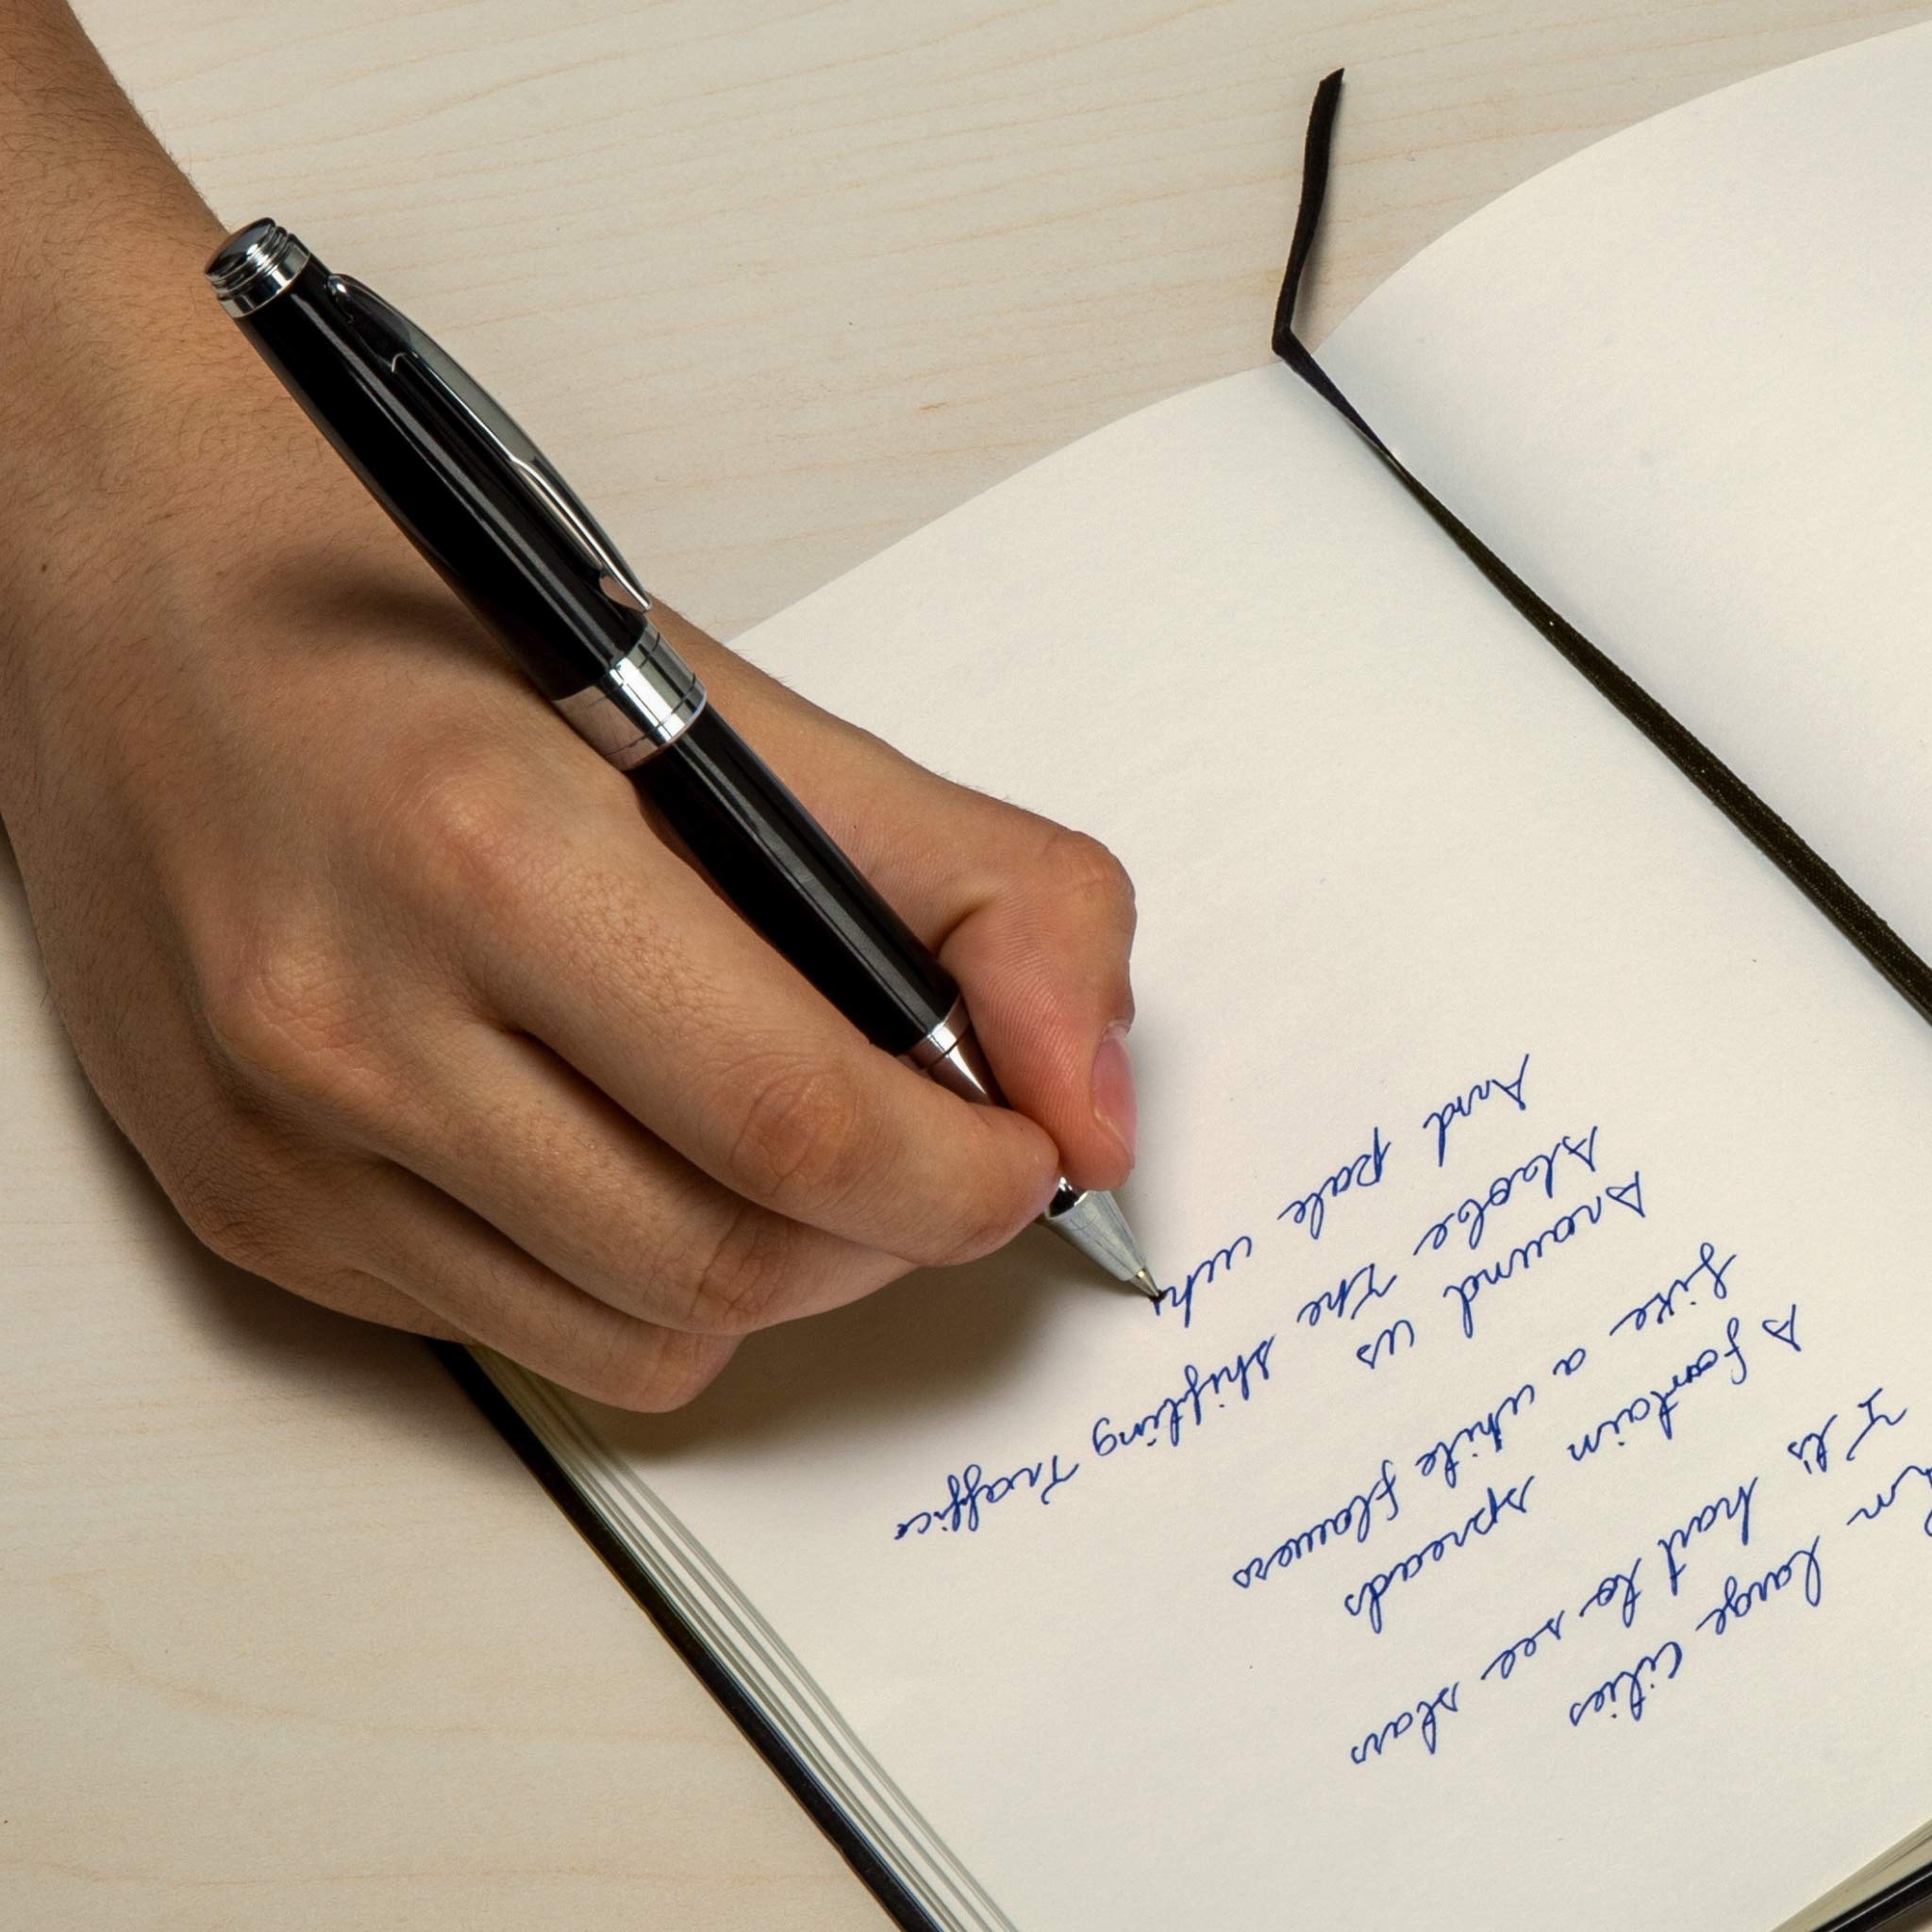 In large cities
It's hard to see stars
A fountain spreads
Like a white flowers
Around us
Above the shifting Traffic
And pale whi